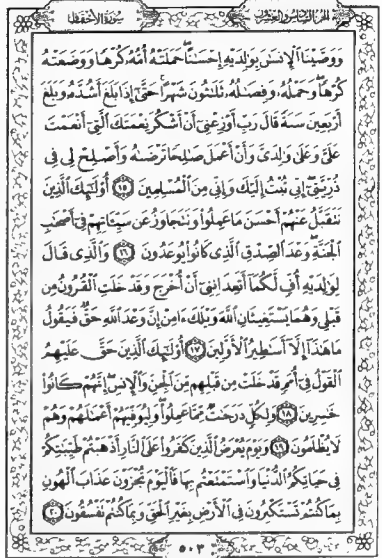 الجزء السادس والعشرون
سورة الأحقاف
وَوَصَّيْنَا ٱلْإِنسَٰنَ بِوَٰلِدَيْهِ إِحْسَٰنًا ۖ حَمَلَتْهُ أُمُّهُۥ كُرْهًا وَوَضَعَتْهُ
كُرْهًا ۖ وَحَمْلُهُۥ وَفِصَٰلُهُۥ ثَلَٰثُونَ شَهْرًا ۚ حَتَّىٰٓ إِذَا بَلَغَ أَشُدَّهُۥ وَبَلَغَ
أَرْبَعِينَ سَنَةً قَالَ رَبِّ أَوْزِعْنِىٓ أَنْ أَشْكُرَ نِعْمَتَكَ ٱلَّتِىٓ أَنْعَمْتَ
عَلَىَّ وَعَلَىٰ وَٰلِدَىَّ وَأَنْ أَعْمَلَ صَٰلِحًا تَرْضَىٰهُ وَأَصْلِحْ لِى فِى
ذُرِّيَّتِىٓ ۖ إِنِّى تُبْتُ إِلَيْكَ وَإِنِّى مِنَ ٱلْمُسْلِمِينَ ١٥ أُو۟لَٰٓئِكَ ٱلَّذِينَ
نَتَقَبَّلُ عَنْهُمْ أَحْسَنَ مَا عَمِلُوا۟ وَنَتَجَاوَزُ عَن سَيِّـَٔاتِهِمْ فِىٓ أَصْحَٰبِ
ٱلْجَنَّةِ ۖ وَعْدَ ٱلصِّدْقِ ٱلَّذِى كَانُوا۟ يُوعَدُونَ ١٦ وَٱلَّذِى قَالَ
لِوَٰلِدَيْهِ أُفٍّ لَّكُمَآ أَتَعِدَانِنِىٓ أَنْ أُخْرَجَ وَقَدْ خَلَتِ ٱلْقُرُونُ مِن
قَبْلِى وَهُمَا يَسْتَغِيثَانِ ٱللَّهَ وَيْلَكَ ءَامِنْ إِنَّ وَعْدَ ٱللَّهِ حَقٌّ فَيَقُولُ
مَا هَٰذَآ إِلَّآ أَسَٰطِيرُ ٱلْأَوَّلِينَ ١٧ أُو۟لَٰٓئِكَ ٱلَّذِينَ حَقَّ عَلَيْهِمُ
ٱلْقَوْلُ فِىٓ أُمَمٍ قَدْ خَلَتْ مِن قَبْلِهِم مِّنَ ٱلْجِنِّ وَٱلْإِنسِ ۖ إِنَّهُمْ كَانُوا۟
خَٰسِرِينَ ١٨ وَلِكُلٍّ دَرَجَٰتٌ مِّمَّا عَمِلُوا۟ ۖ وَلِيُوَفِّيَهُمْ أَعْمَٰلَهُمْ وَهُمْ
لَا يُظْلَمُونَ ١٩ وَيَوْمَ يُعْرَضُ ٱلَّذِينَ كَفَرُوا۟ عَلَى ٱلنَّارِ أَذْهَبْتُمْ طَيِّبَٰتِكُمْ
فِى حَيَاتِكُمُ ٱلدُّنْيَا وَٱسْتَمْتَعْتُم بِهَا فَٱلْيَوْمَ تُجْزَوْنَ عَذَابَ ٱلْهُونِ
بِمَا كُنتُمْ تَسْتَكْبِرُونَ فِى ٱلْأَرْضِ بِغَيْرِ ٱلْحَقِّ وَبِمَا كُنتُمْ تَفْسُقُونَ ٢٠